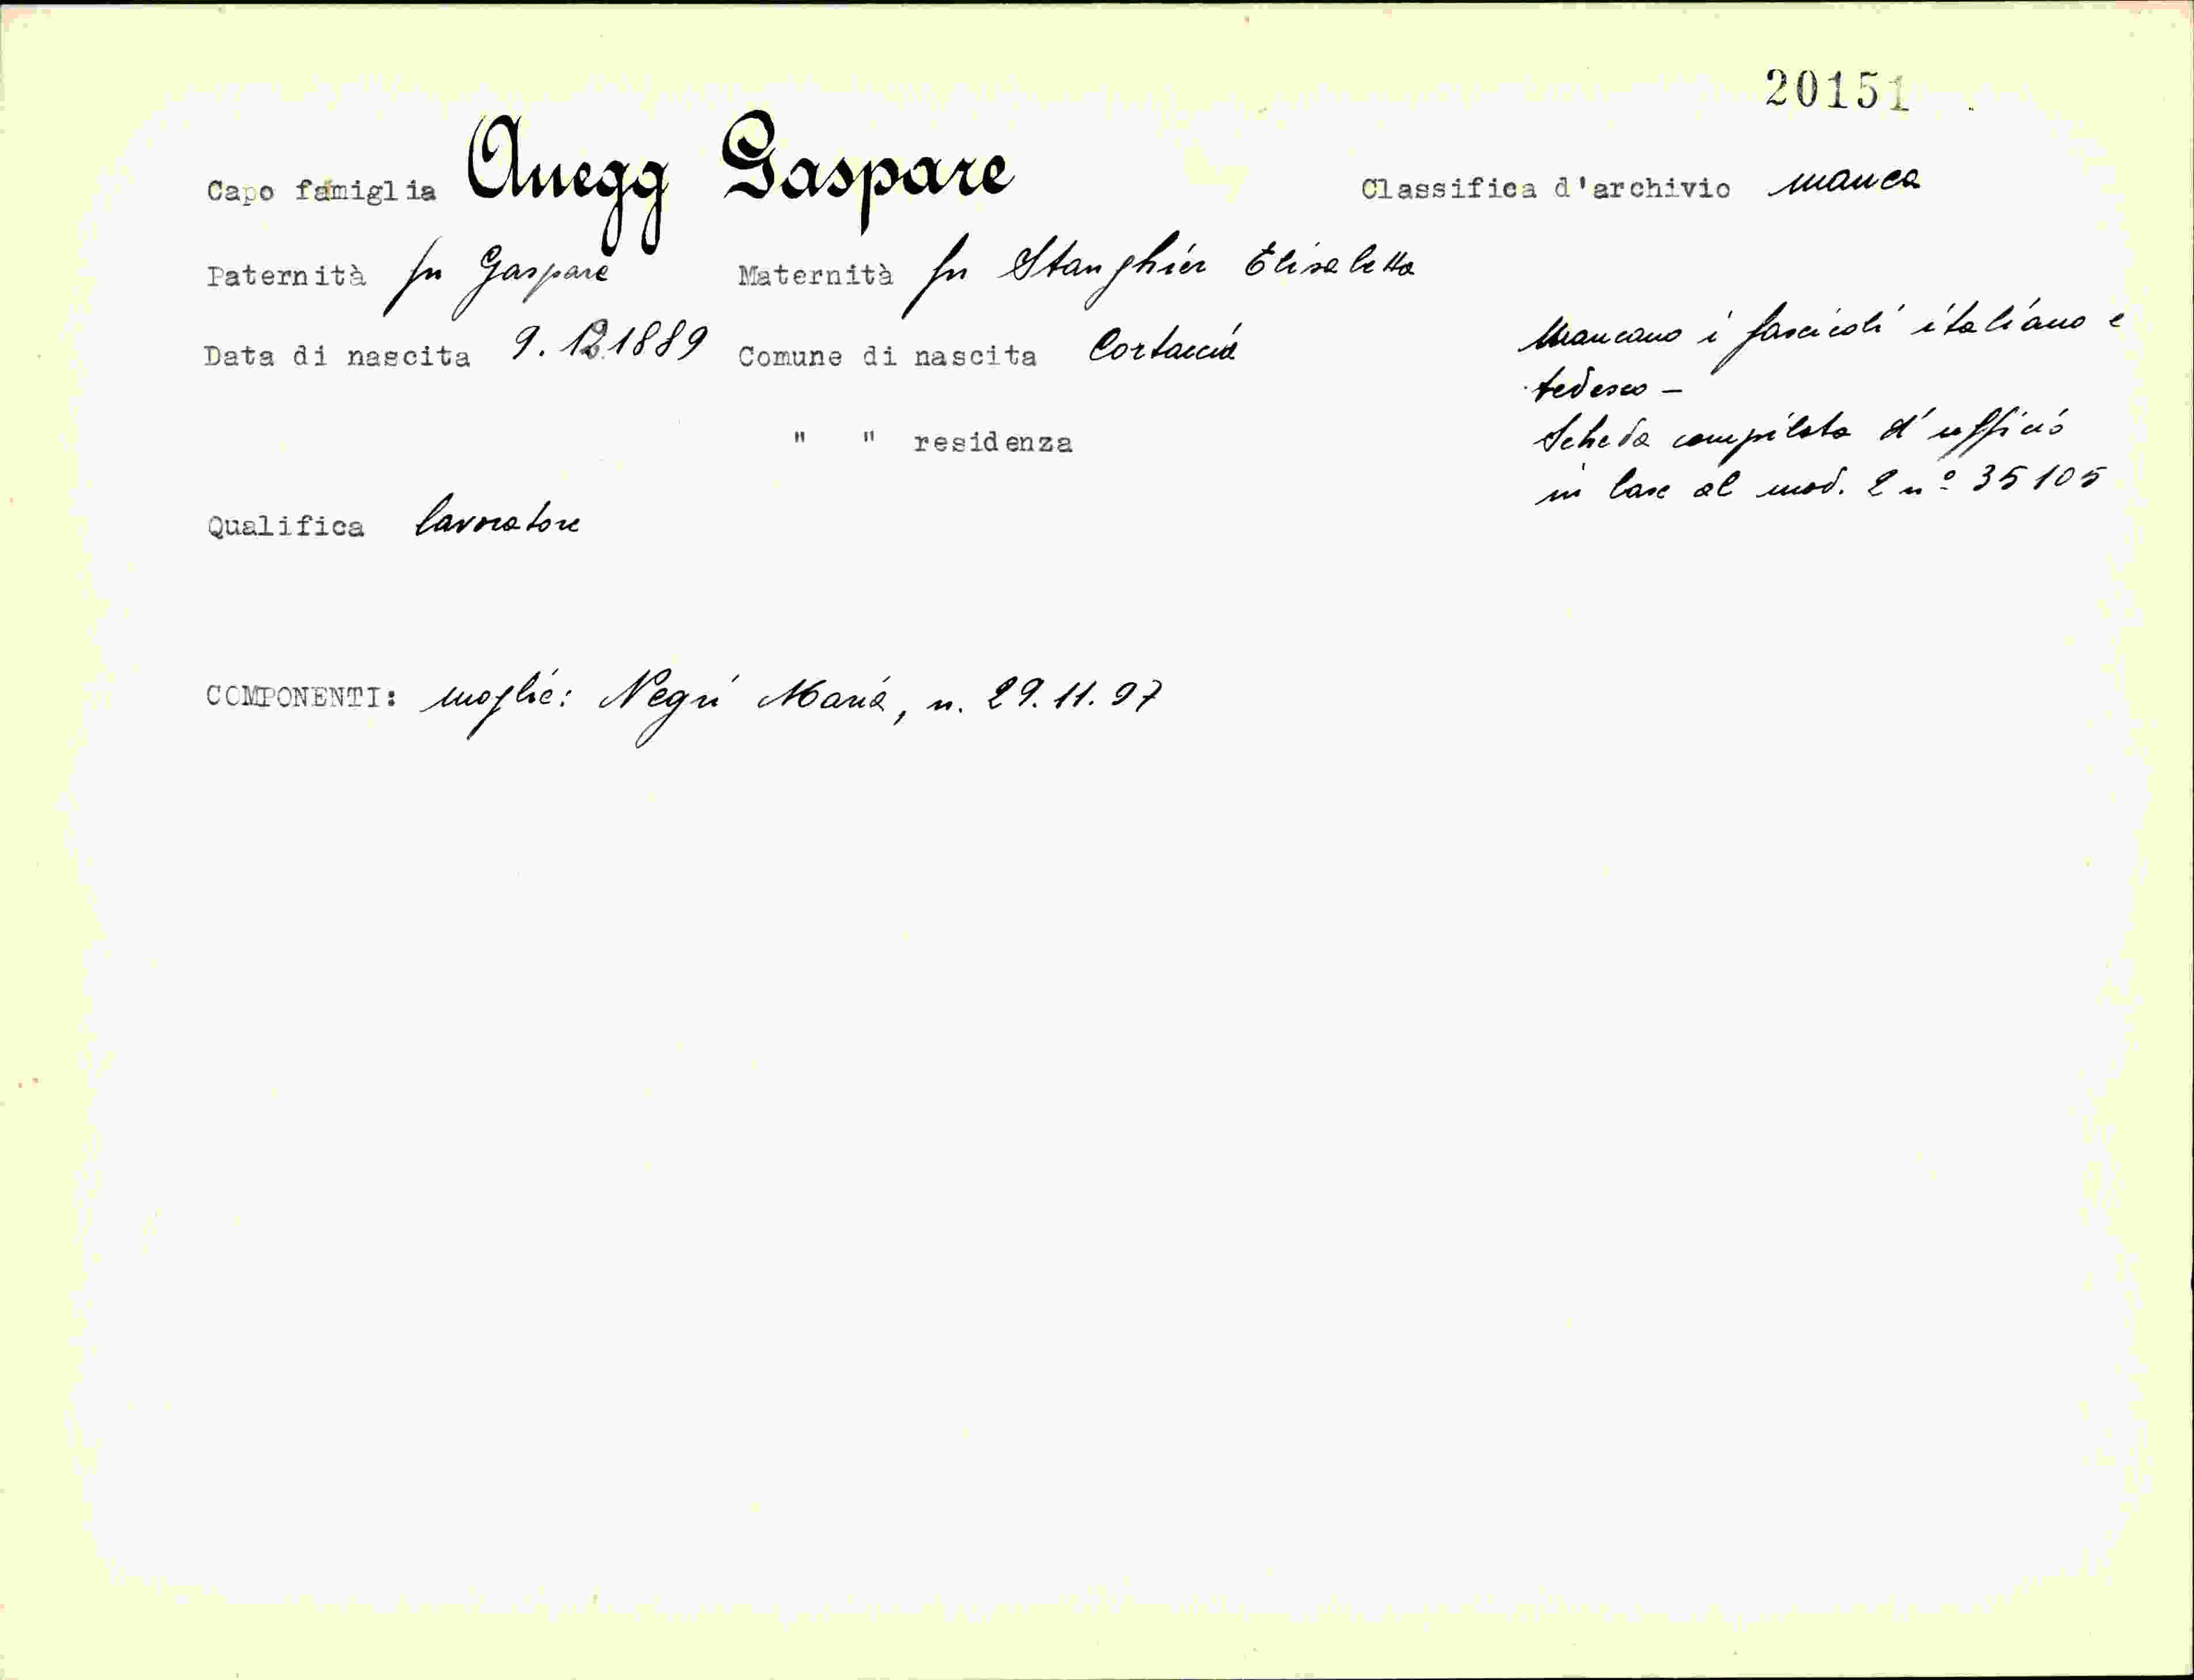 20151
Capo famiglia Anegg Gaspare Classifica d'archivio manca
Paternità fu Gaspare Maternità fu Stanghier Elisabetta
Data di nascita 9.12.1889 Comune di nascita Cortaccia
" " residenza
Qualifica lavoratore
Mancano i fascicoli italiano e
tedesco –
Scheda compilata d'ufficio
in base al mod. 2 nº 35105
COMPONENTI: moglie: Negri Maria, n. 29.11.97